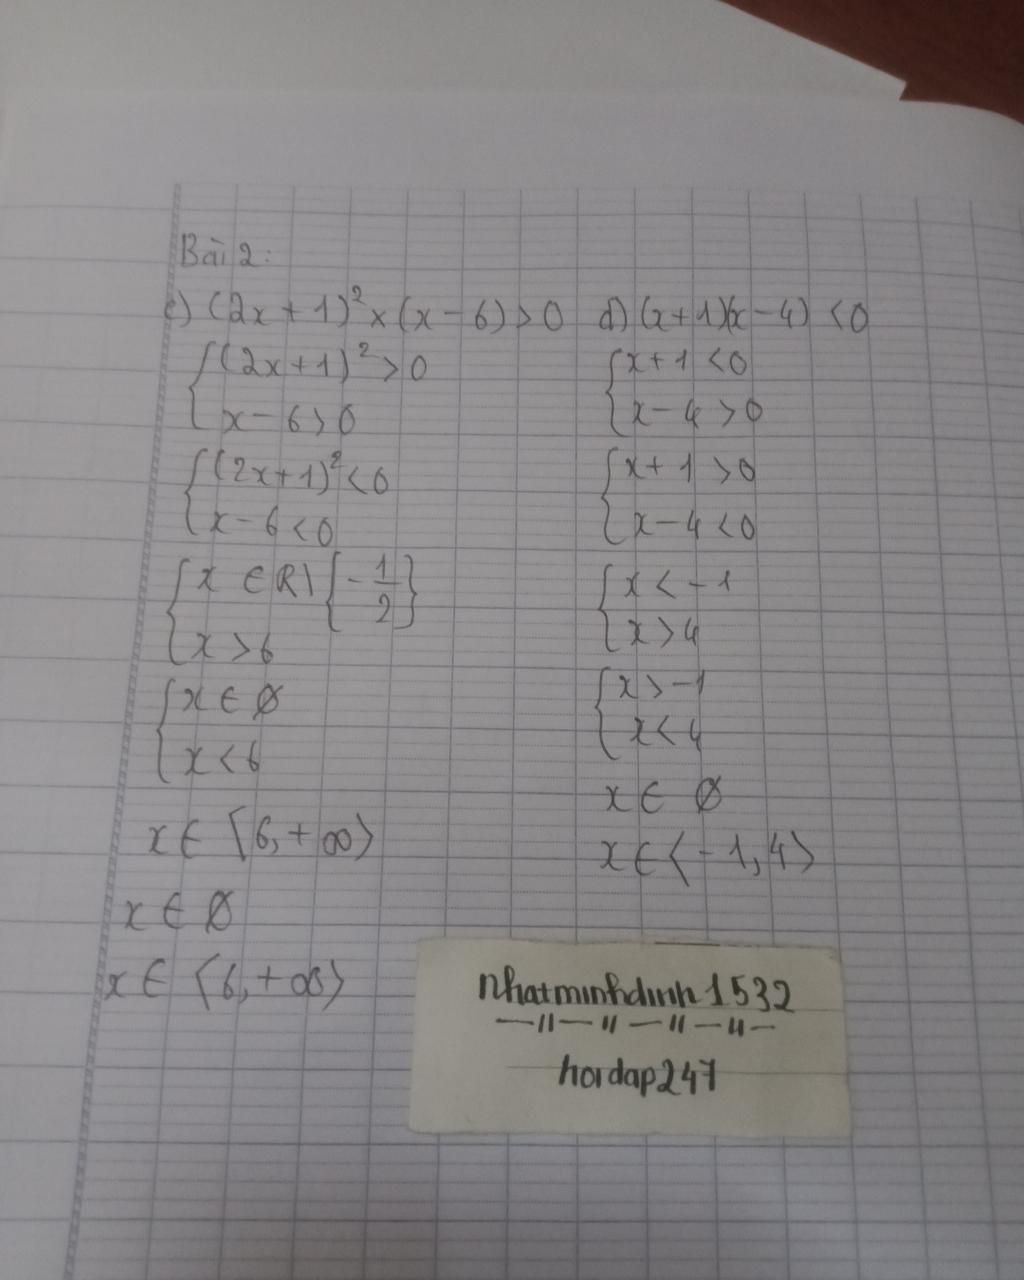 Bài 2:
c) (2x + 1)² × (x - 6) > 0
{ (2x + 1)² > 0
x - 6 > 0
{ (2x + 1)² < 0
x - 6 < 0
{ x ∈ R \ { - 1/2 }
x > 6
{ x ∈ ∅
x < 6
x ∈ ⟨6, + ∞⟩
x ∈ ∅
x ∈ ⟨6, + ∞⟩
d) (x + 1)(x - 4) < 0
{ x + 1 < 0
x - 4 > 0
{ x + 1 > 0
x - 4 < 0
{ x < - 1
x > 4
{ x > - 1
x < 4
x ∈ ∅
x ∈ ⟨- 1, 4⟩
nhatminhdinh1532
—11— 11 — 11 — 11 —
hoidap247